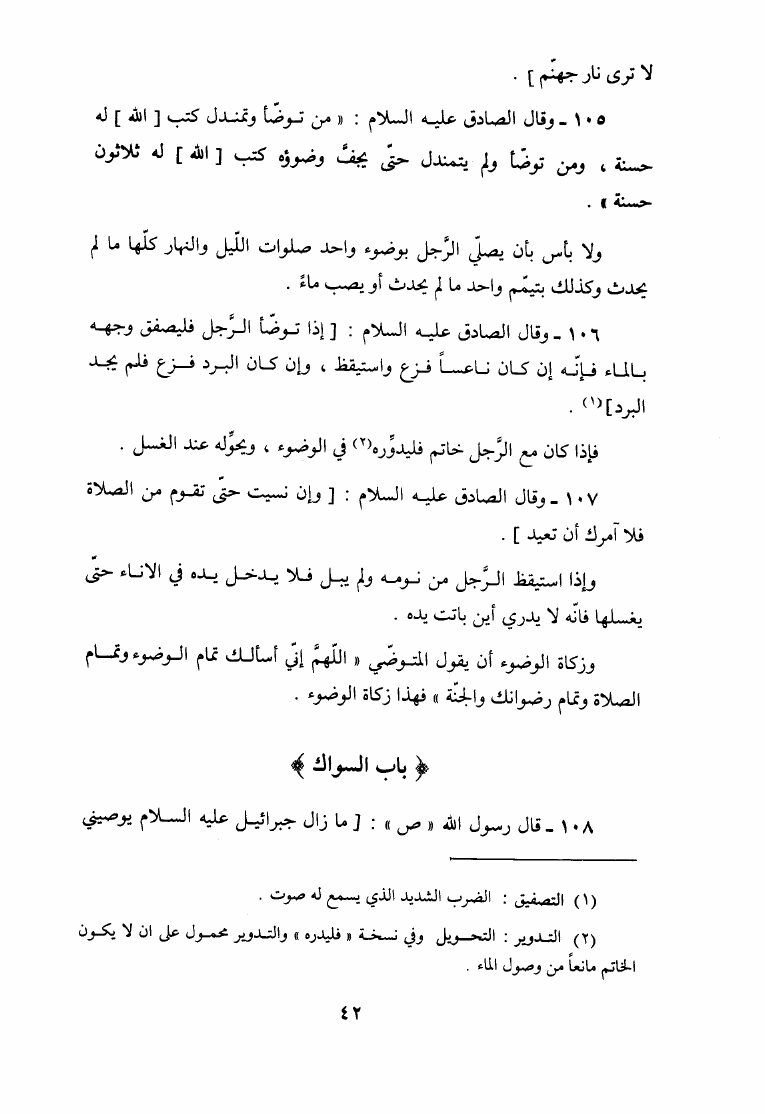 لا ترى نار جهنّم ] .
١٠٥ ـ وقال الصادق عليه السلام : « من توضّأ وتمندل كتب [ الله ] له
حسنة ، ومن توضّأ ولم يتمندل حتّى يجفَّ وضوؤه كتب [ الله ] له ثلاثون
حسنة » .
ولا بأس بأن يصلّي الرَّجل بوضوء واحد صلوات اللّيل والنهار كلّها ما لم
يحدث وكذلك بتيمّم واحد ما لم يحدث أو يصب ماءً .
١٠٦ ـ وقال الصادق عليه السلام : [ إذا توضّأ الرَّجل فليصفق وجهه
بالماء فإنّه إن كان ناعساً فزع واستيقظ ، وإن كان البرد فزع فلم يجد
البرد](١) .
فإذا كان مع الرَّجل خاتم فليدوِّره(٢) في الوضوء ، ويحوِّله عند الغسل .
١٠٧ ـ وقال الصادق عليه السلام : [ وإن نسيت حتّى تقوم من الصلاة
فلا آمرك أن تعيد ] .
وإذا استيقظ الرَّجل من نومه ولم يبل فلا يدخل يده في الاناء حتّى
يغسلها فانّه لا يدري أين باتت يده .
وزكاة الوضوء أن يقول المتوضّي « اللّهمَّ إنّي أسألك تمام الوضوء وتمام
الصلاة وتمام رضوانك والجنّة » فهذا زكاة الوضوء .
﴿ باب السواك ﴾
١٠٨ ـ قال رسول الله « ص » : [ ما زال جبرائيل عليه السلام يوصيني
(١) التصفيق : الضرب الشديد الذي يسمع له صوت .
(٢) التدوير : التحويل وفي نسخة « فليدره » والتدوير محمول على ان لا يكون
الخاتم مانعاً من وصول الماء .
٤٢